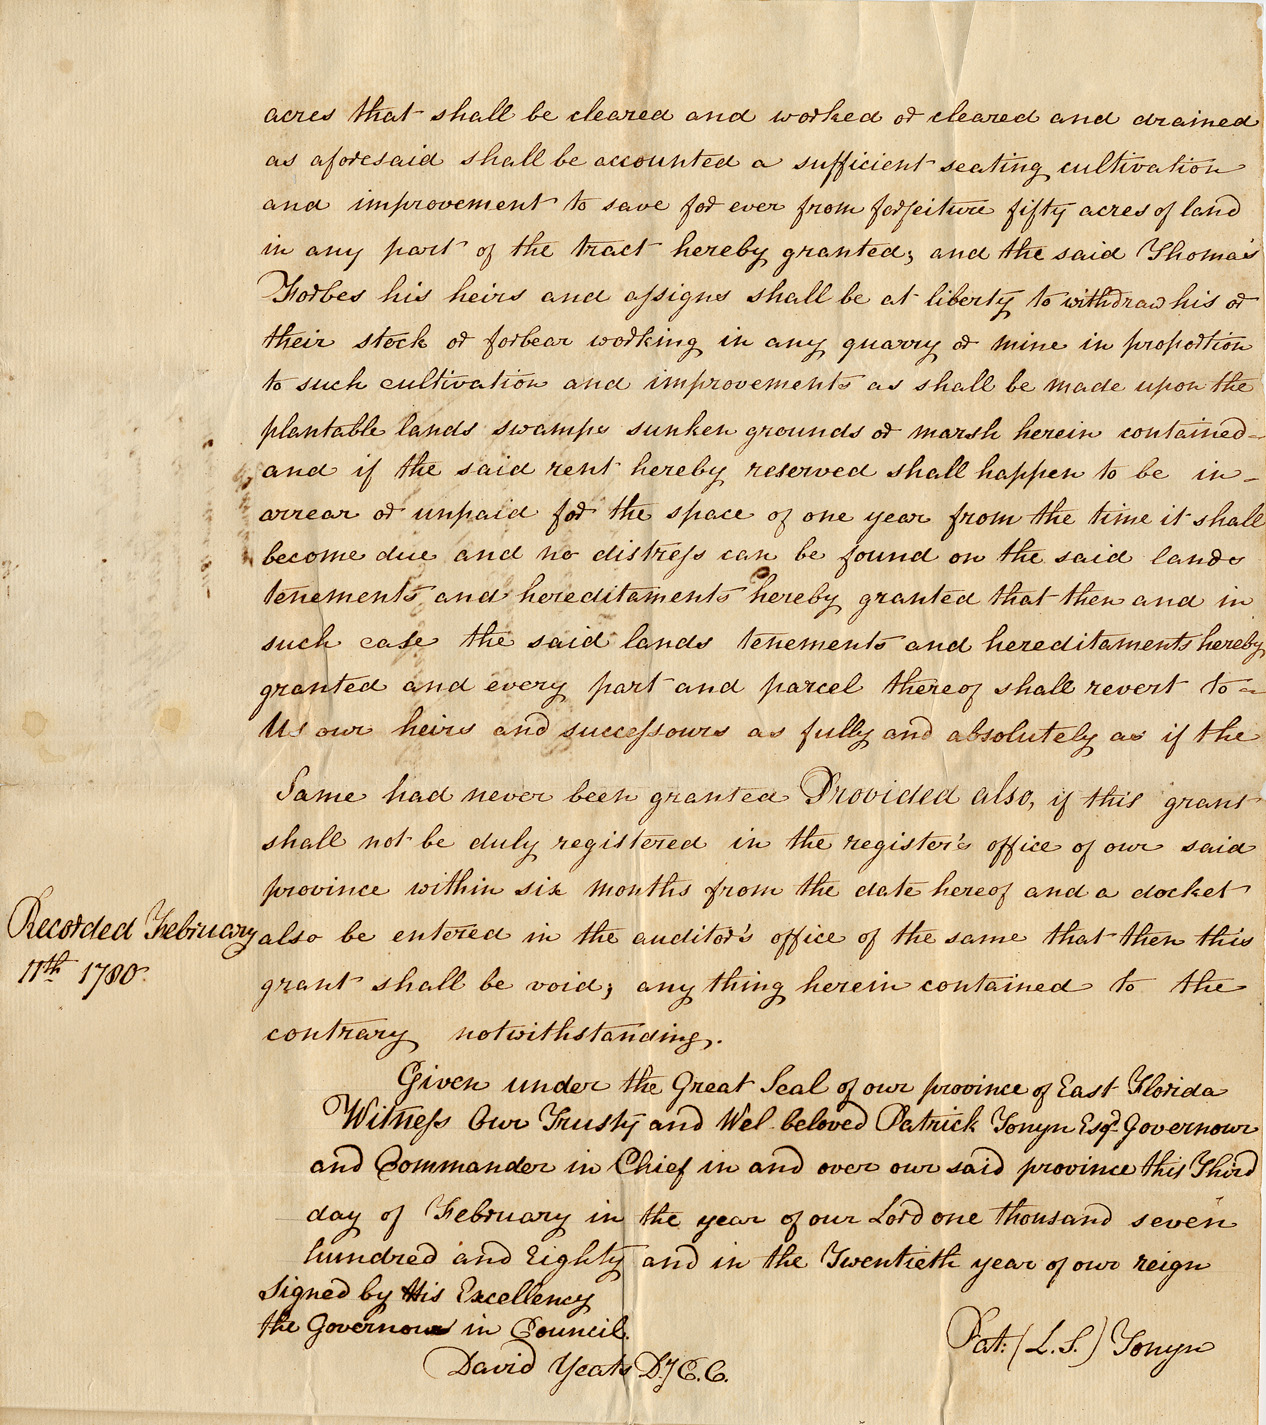 acres that shall be cleared and worked or cleared and drained
as aforesaid shall be accounted a sufficient seating cultivation
and improvement to save for ever from forfeiture fifty acres of land
in any part of the tract hereby granted; and the said Thomas
Forbes his heirs and assigns shall be at liberty to withdraw his or
their stock or forbear working in any quarry or mine in proportion
to such cultivation and improvements as shall be made upon the
plantable lands swamps sunken grounds or marsh herein contained
and if the said rent hereby reserved shall happen to be in-
arrear or unpaid for the space of one year from the time it shall
become due and no distress can be found on the said lands
tenements and hereditaments hereby granted that then and in
such case the said lands tenements and hereditaments hereby
granted and every part and parcel thereof shall revert to
Us our heirs and successours as fully and absolutely as if the
Same had never been granted Provided also, if this grant
shall not be duly registered in the register's office of our said
province within six months from the date hereof and a docket
Recorded February
11th 1780.
also be entered in the auditor's office of the same that then this
grant shall be void; any thing herein contained to the
contrary notwithstanding.
Given under the Great Seal of our province of East Florida
Witness Our Trusty and Wel beloved Patrick Tonyn Esqr. Governour
and Commander in Chief in and over our said province this Third
day of February in the year of our Lord one thousand seven
hundred and Eighty and in the Twentieth year of our reign
Signed by His Excellency
the Governour in Council.
Pat: (L.S.) Tonyn
David Yeats D.y C.C.